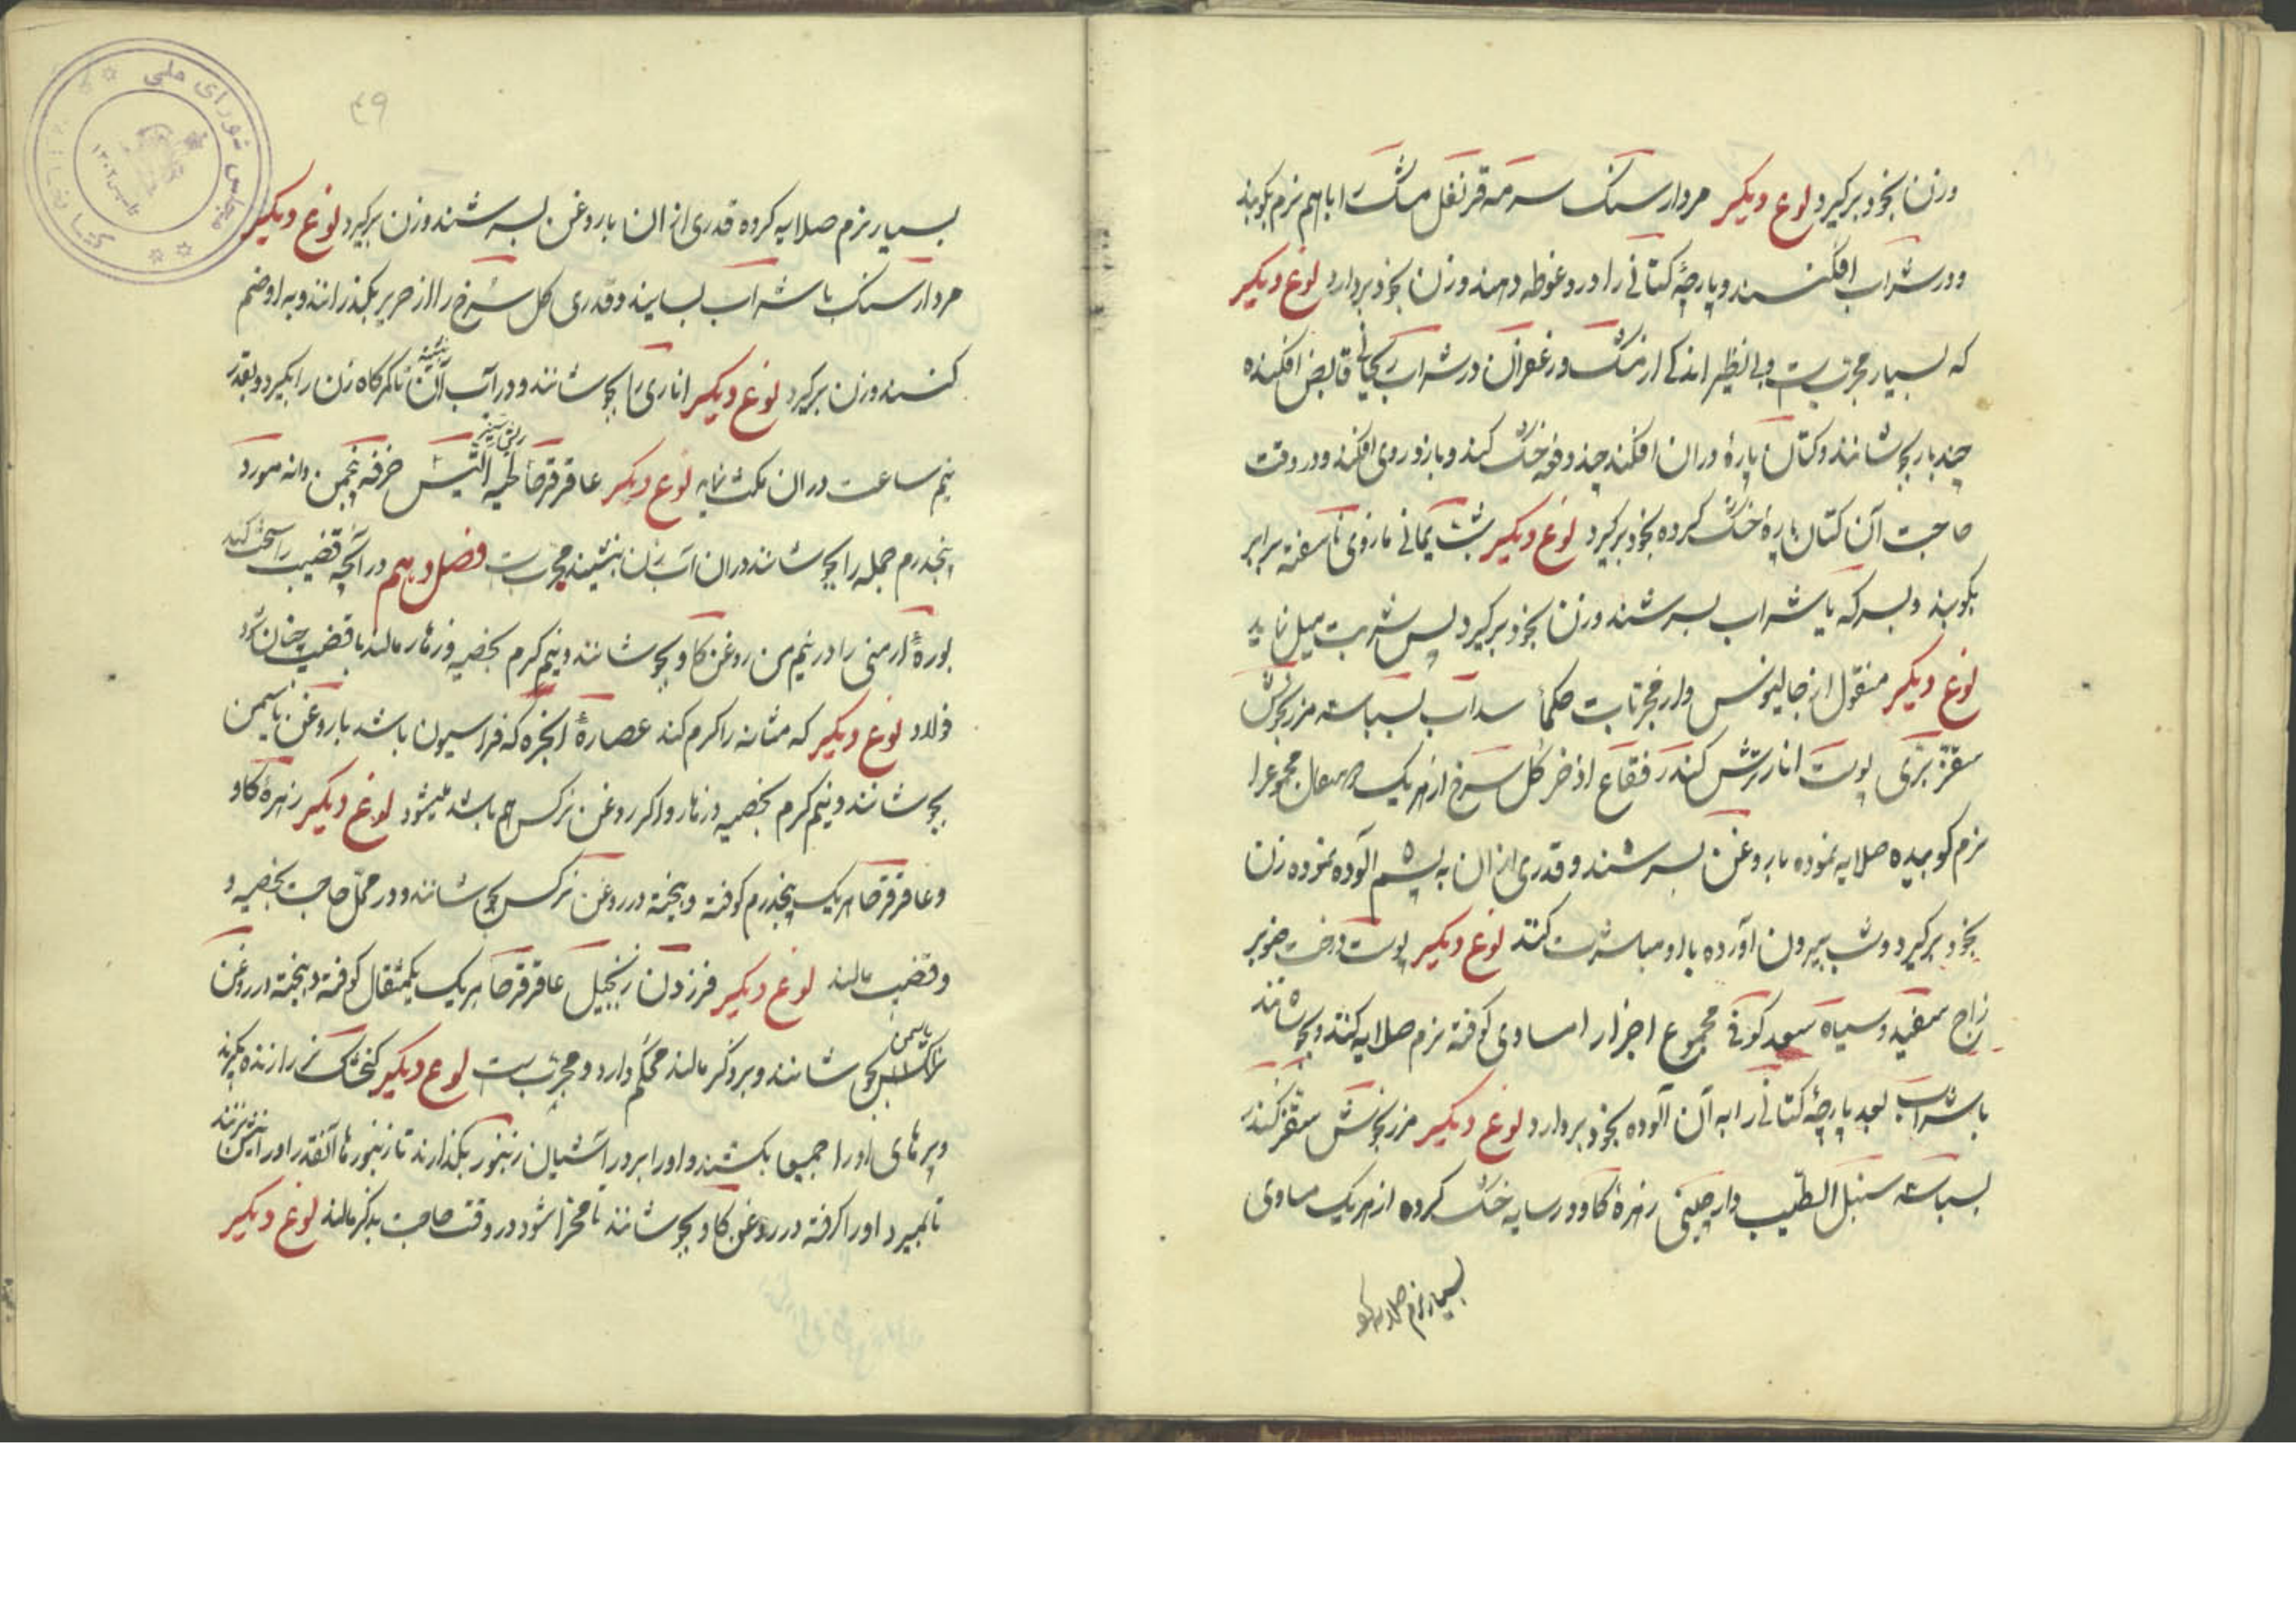 وزن بخود برگیرد نوع دیگر مردارسنک سرمه قرنفل مشک را با هم نرم بکوبند
و در شراب افکنند و پارچهٔ کتانی را در و غوطه دهند و زن بخود بردارد نوع دیگر
که بسیار مجربست و بی نظیر اندکی از مشک و زعفران در شراب ریحانی قابض افکنده
چند بار بجوشانند و کتان پارهٔ در ان افکنند چند دفعه خشک کنند و باز در وی افکنند و در وقت
حاجت آن کتان پارهٔ خشک کرده بخود برگیرد نوع دیگر شب یمانی مازوی ناسفته برابر
بکوبند و بسرکه یا شراب بسرشند و زن بخود برگیرد پس شربت میل نماید
نوع دیگر منقول از جالینوس و از مجربات حکما سداب بسباسه مرزنجوش
سقز بری پوست انار ترش کندر فقاع اذخر کل سرخ از هر یک مثقال مجموع را
نرم کوبیده صلایه نموده با روغن بسرشند و قدری از ان به پشم آلوده نموده زن
بخود برگیرد و شب بیرون آورده با او مباشرت کنند نوع دیگر پوست درخت صنوبر
زاج سفید و سیاه سعد کوفی مجموع اجزا را مساوی کوفته نرم صلایه کنند و بجوشانند
با شراب بعد پارچهٔ کتانی را به آن آلوده بخود بردارد نوع دیگر مرزنجوش سقز کندر
بسباسه سنبل الطیب دارچینی زهرهٔ کاو در سایه خشک کرده از هر یک مساوی
بسیار نرم صلایه کرده
۴۹
بسیار نرم صلایه کرده قدری از ان با روغن بسرشند و زن برگیرد نوع دیگر
مردارسنک با شراب بسایند و قدری کل سرخ را از حریر بگذرانند و به او ضم
کنند و زن برگیرد نوع دیگر اناری را بجوشانند و در آب آن نشیند تا کمرگاه زن را بگیرد و بقدر
نیم ساعت در ان مکث نماید نوع دیگر عاقرقرحا لحیه التیس ریش بز خرفه پنجمن دانه مورد
پنجدرم جمله را بجوشانند در ان آب زن بنشیند مجربست فصل دهم در آنچه قضیب را سخت کند
بورهٔ ارمنی را در نیم من روغن کاو بجوشانند و نیم کرم بخصیه و زهار مالند تا قضیب چنان شود
فولاد نوع دیگر که مثانه را کرم کند عصارهٔ انجره که فراسیون باشد با روغن یاسمین
بجوشانند و نیم کرم بخصیه و زهار و اگر روغن نرکس هم باشد میشود نوع دیگر زهرهٔ کاو
و عاقرقرحا هر یک پنجدرم کوفته و بیخته در روغن نرکس بجوشانند و در محل حاجت بخصیه و
و قضیب مالند نوع دیگر زنجبیل عاقرقرحا هر یک یکمثقال کوفته و بیخته در روغن
یاسمن بجوشانند و بر ذکر مالند محکم دارد و مجربست نوع دیگر کنجشک نر را زنده بگیرند
و پرهای او را جمیعا بکشند و او را بر در آشیان زنبور بگذارند تا زنبورها آنقدر او را نیش بزنند
تا بمیرد او را گرفته در روغن کاو بجوشانند تا مهرا شود در وقت حاجت بذکر مالند نوع دیگر
مجلس شورای ملی